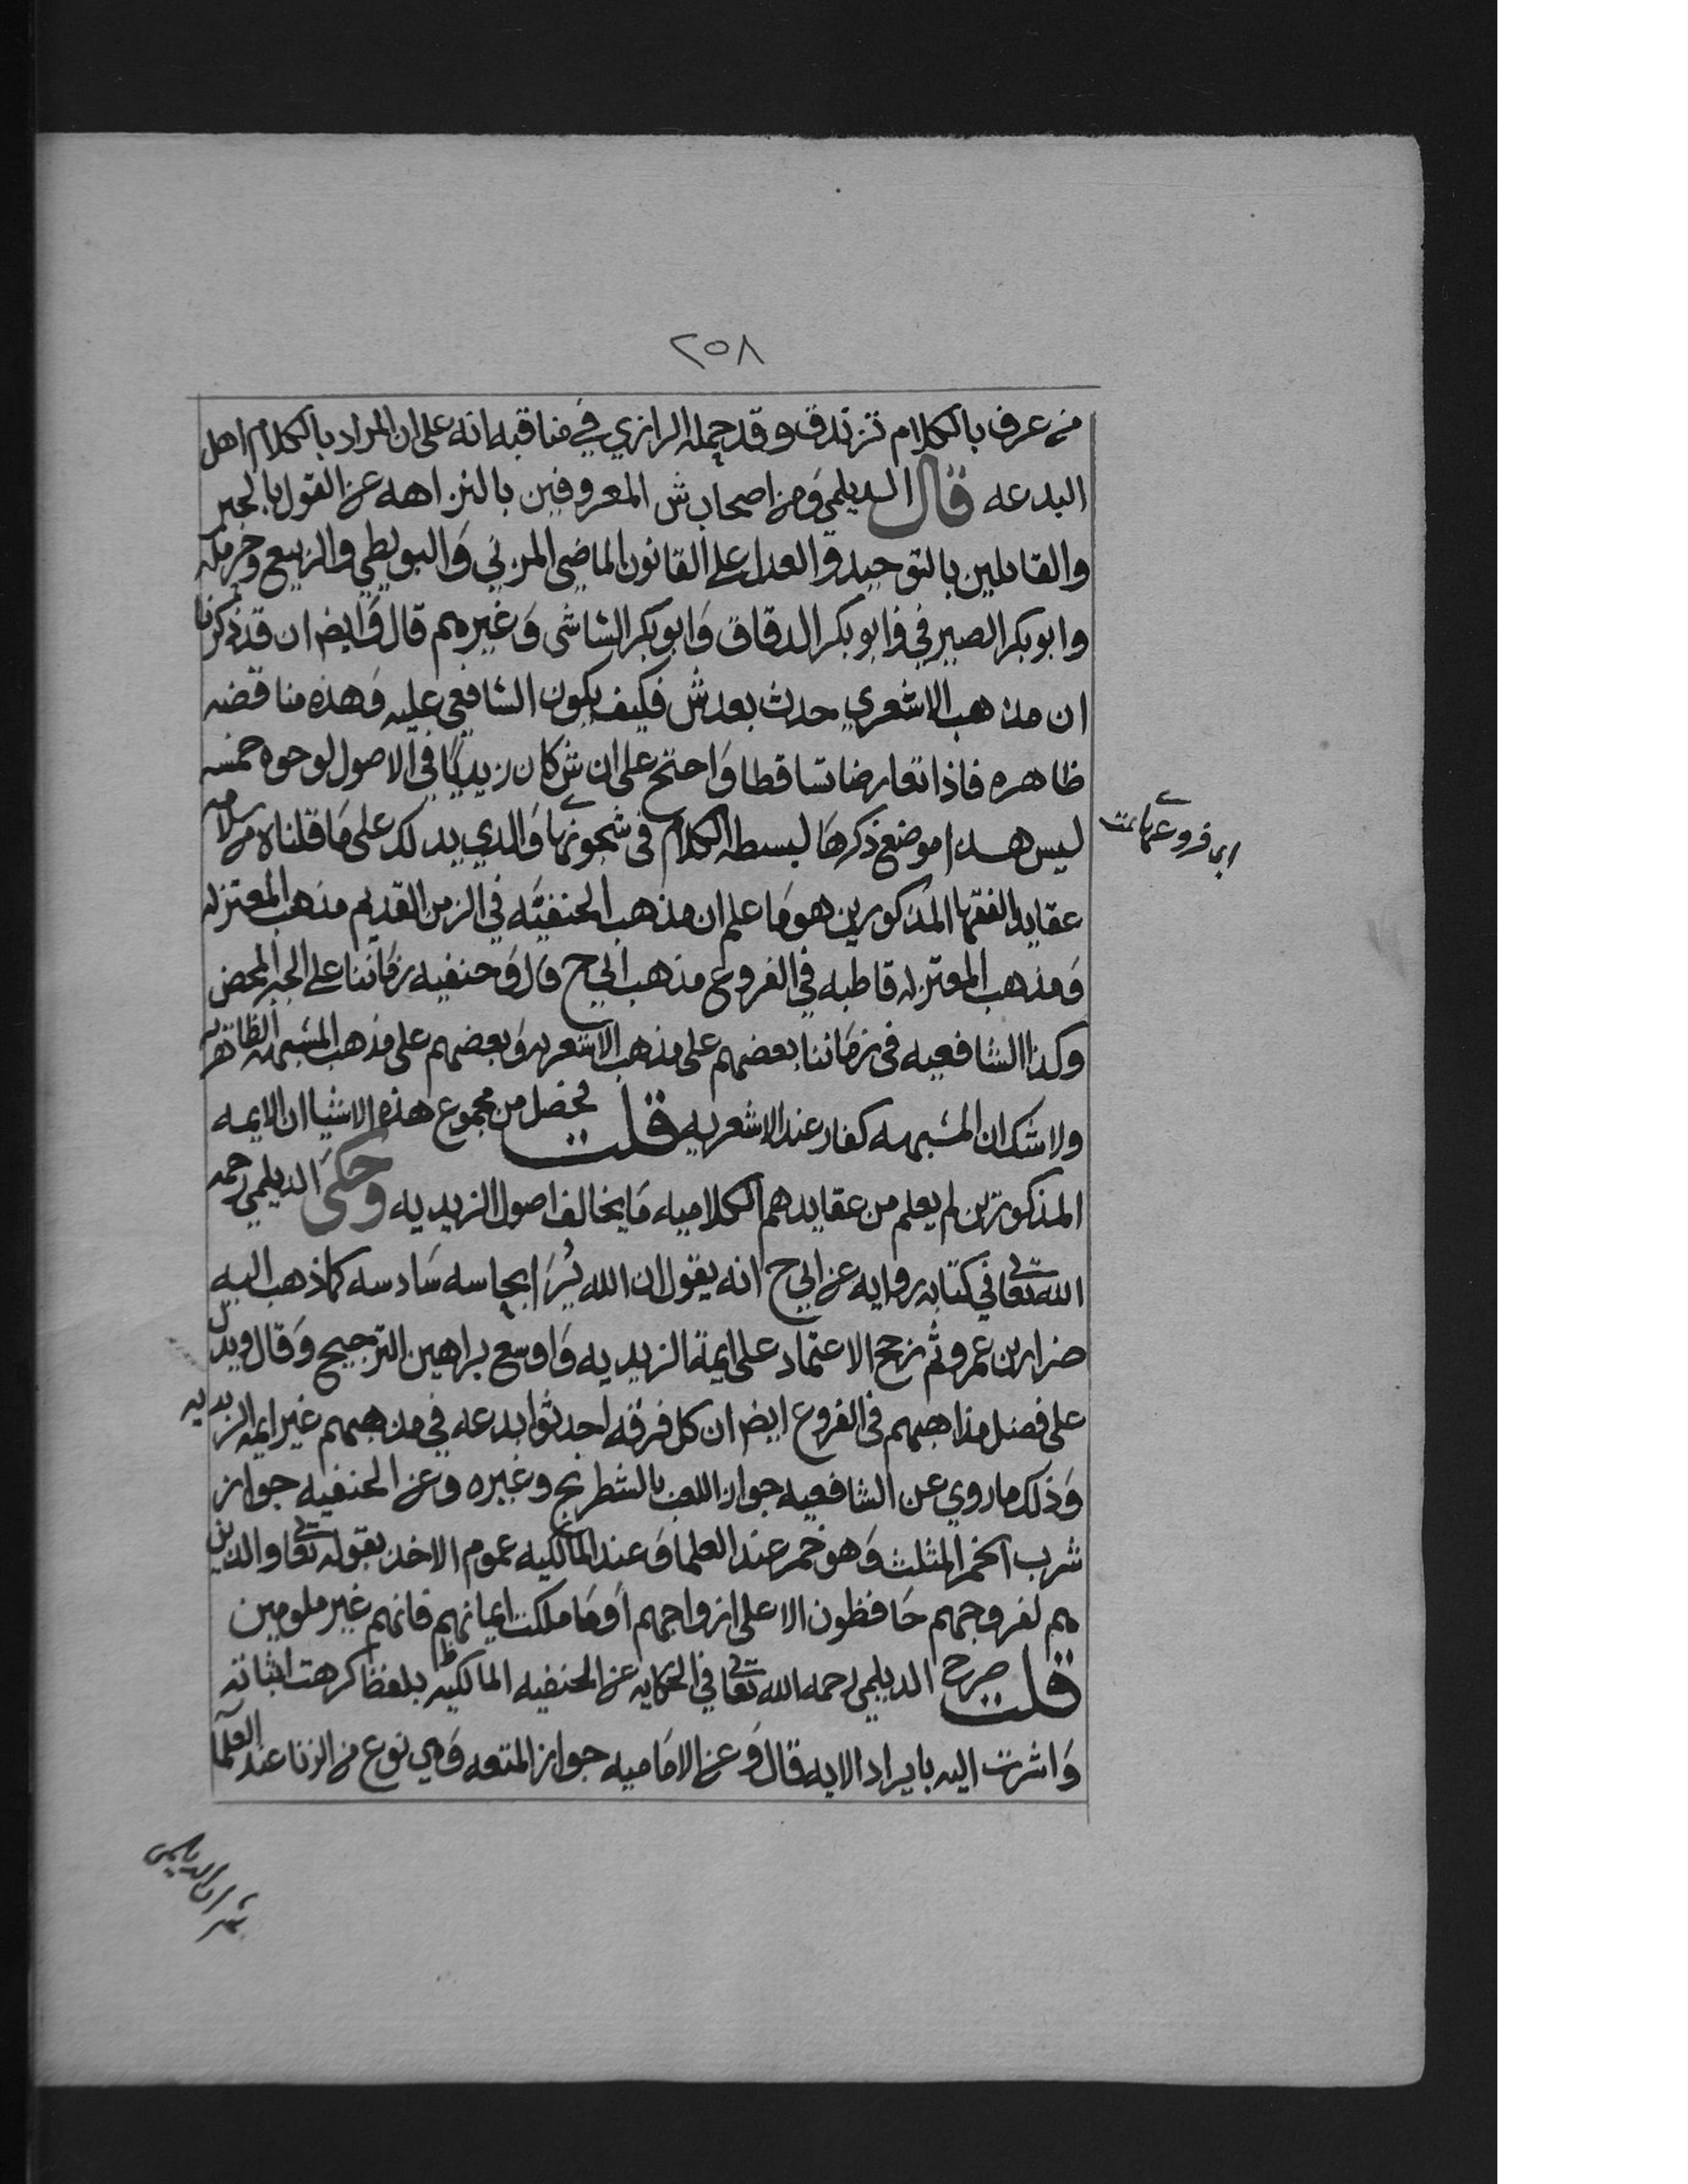 ٢٥٨
من عرف بالكلام تزندق وقد حمله الرازي في مناقبه انه على ان المراد بالكلام اهل
البدعه قال الديلمي ومن اصحاب ش المعروفين بالنزاهه عن القول بالجبر
والقايلين بالتوحيد والعدل على القانون الماضي المزني والبويطي والربيع وحرمله
وابو بكر الصيرفي وابو بكر الدقاق وابو بكر الشاشي وغيرهم قال وايضا ان قد ذكرنا
ان مذهب الاشعري حدث بعد ش فكيف يكون الشافعي عليه وهذه مناقضه
ظاهره فاذا تعارضا تساقطا واحتج على ان ش كان زيديا في الاصول لوجوه خمسه
ليس هذا موضع ذكرها لبسطه الكلام في شجونها والذي يدلك على ما قلناه من سلامه
عقايد الفقها المذكورين هو ما علم ان مذهب الحنفيه في الزمن القديم مذهب المعتزله
ومذهب المعتزله قاطبه في الفروع مذهب ابي ح قال وحنفيه زماننا على الجبر المحض
وكذا الشافعيه في زماننا بعضهم على مذهب الاشعريه وبعضهم على مذهب المشبهه الظاهريه
ولا شك ان المشبهه كفار عند الاشعريه قلت تحصل من مجموع هذه الاشيا ان الايمه
المذكورين لم يعلم من عقايدهم الكلاميه ما يخالف اصول الزيديه وحكى الديلمي رحمه
الله تعالى في كتابه روايه عن ابي ح انه يقول ان الله يُرَا بحاسه سادسه كما ذهب اليه
ضرار بن عمرو ثم رجح الاعتماد على ايمة الزيديه واوسع براهين الترجيح وقال ويدل
على فضل مذاهبهم في الفروع ايضا ان كل فرقه احدثوا بدعه في مذهبهم غير ايمه الزيديه
وذلك ما روي عن الشافعيه جواز اللعب بالشطرنج وغيره وعن الحنفيه جواز
شرب الخمر المثلث وهو خمر عند العلما وعند المالكيه عموم الاخذ بقوله تعالى والذين
هم لفروجهم حافظون الا على ازواجهم او ما ملكت ايمانهم فانهم غير ملومين
قلت صرح الديلمي رحمه الله تعالى في الحكايه عن الحنفيه المالكيه بلفظ كرهت اثباته
واشرت اليه بايراد الايه قال وعن الاماميه جواز المتعه وهي نوع من الزنا عند العلما